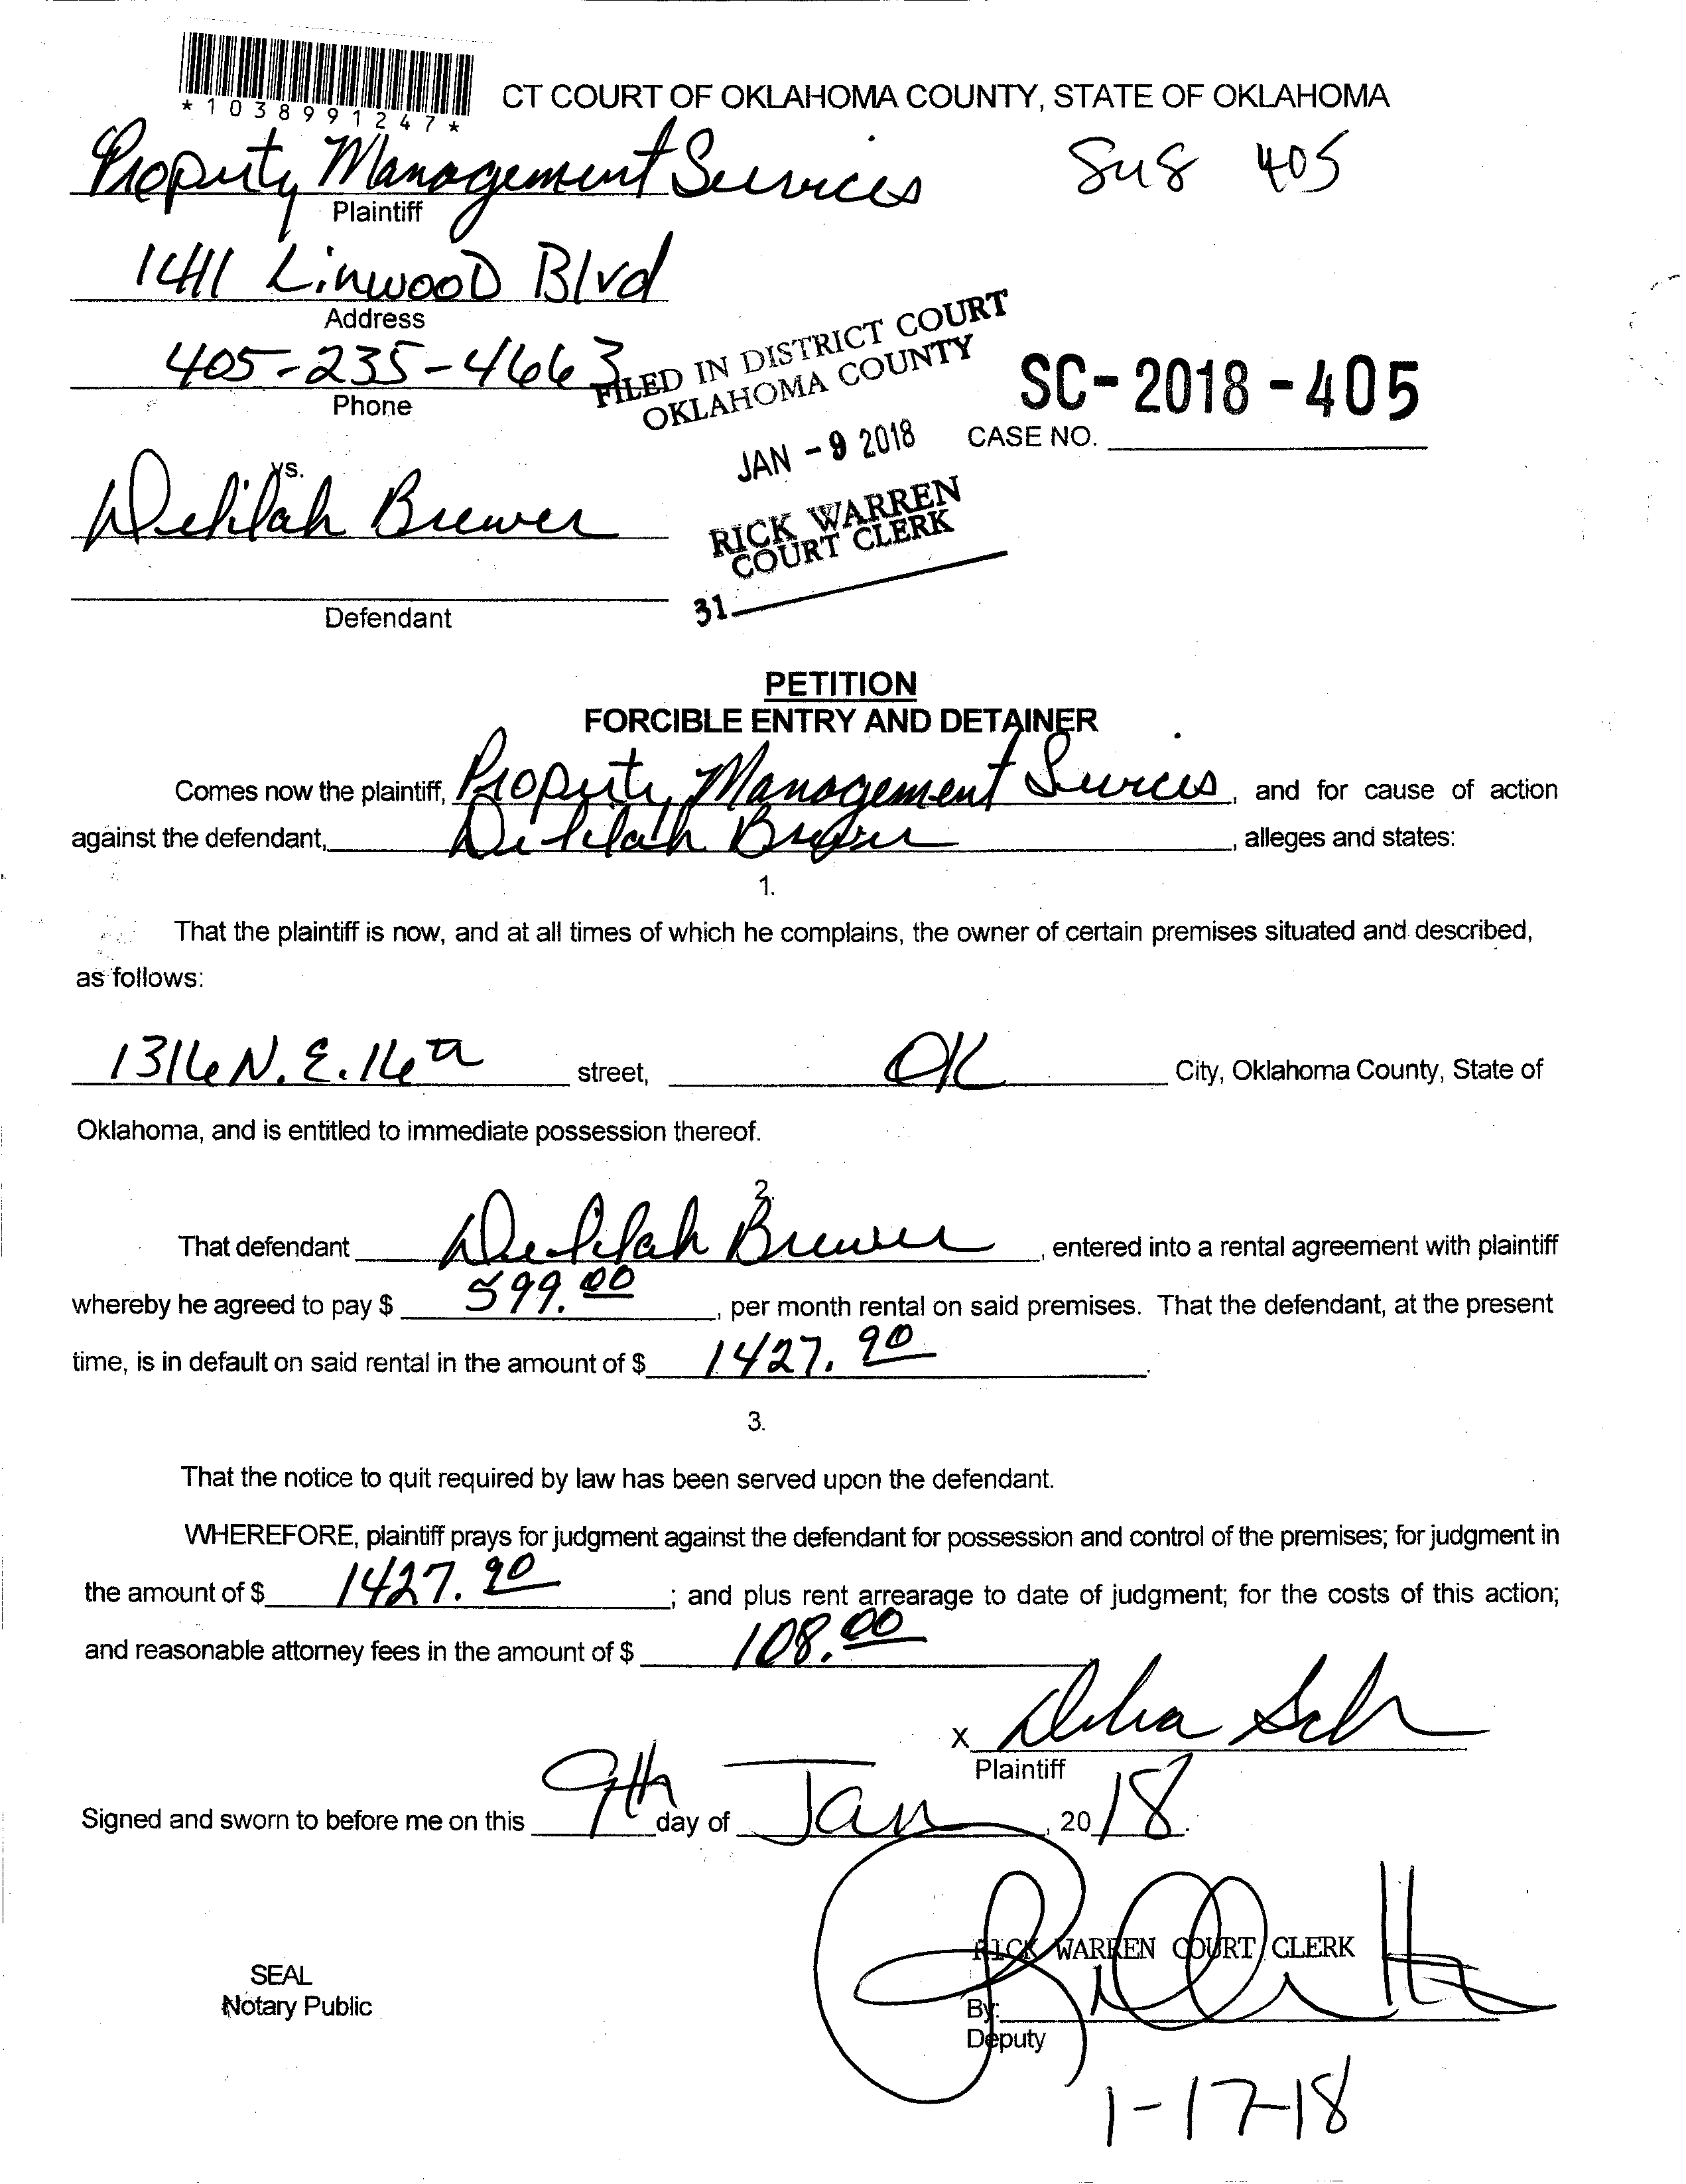 *1038991247*
CT COURT OF OKLAHOMA COUNTY, STATE OF OKLAHOMA
Property Management Services
Plaintiff
405
1411 Linwood Blvd
Address
405-235-4663
Phone
FILED IN DISTRICT COURT
OKLAHOMA COUNTY
JAN - 9 2018
RICK WARREN
COURT CLERK
31
SC-2018-405
CASE NO.
vs.
Delilah Brewer
Defendant
PETITION
FORCIBLE ENTRY AND DETAINER
Comes now the plaintiff, Property Management Services, and for cause of action
against the defendant, Delilah Brewer, alleges and states:
1.
That the plaintiff is now, and at all times of which he complains, the owner of certain premises situated and described,
as follows:
1316 N.E. 16th street, OK City, Oklahoma County, State of
Oklahoma, and is entitled to immediate possession thereof.
2.
That defendant Delilah Brewer, entered into a rental agreement with plaintiff
whereby he agreed to pay $ 599.00, per month rental on said premises. That the defendant, at the present
time, is in default on said rental in the amount of $ 1427.90.
3.
That the notice to quit required by law has been served upon the defendant.
WHEREFORE, plaintiff prays for judgment against the defendant for possession and control of the premises; for judgment in
the amount of $ 1427.90; and plus rent arrearage to date of judgment; for the costs of this action;
and reasonable attorney fees in the amount of $ 108.00
X
Plaintiff
Signed and sworn to before me on this 9th day of Jan, 2018.
RICK WARREN COURT CLERK
SEAL
Notary Public
By:
Deputy
1-17-18